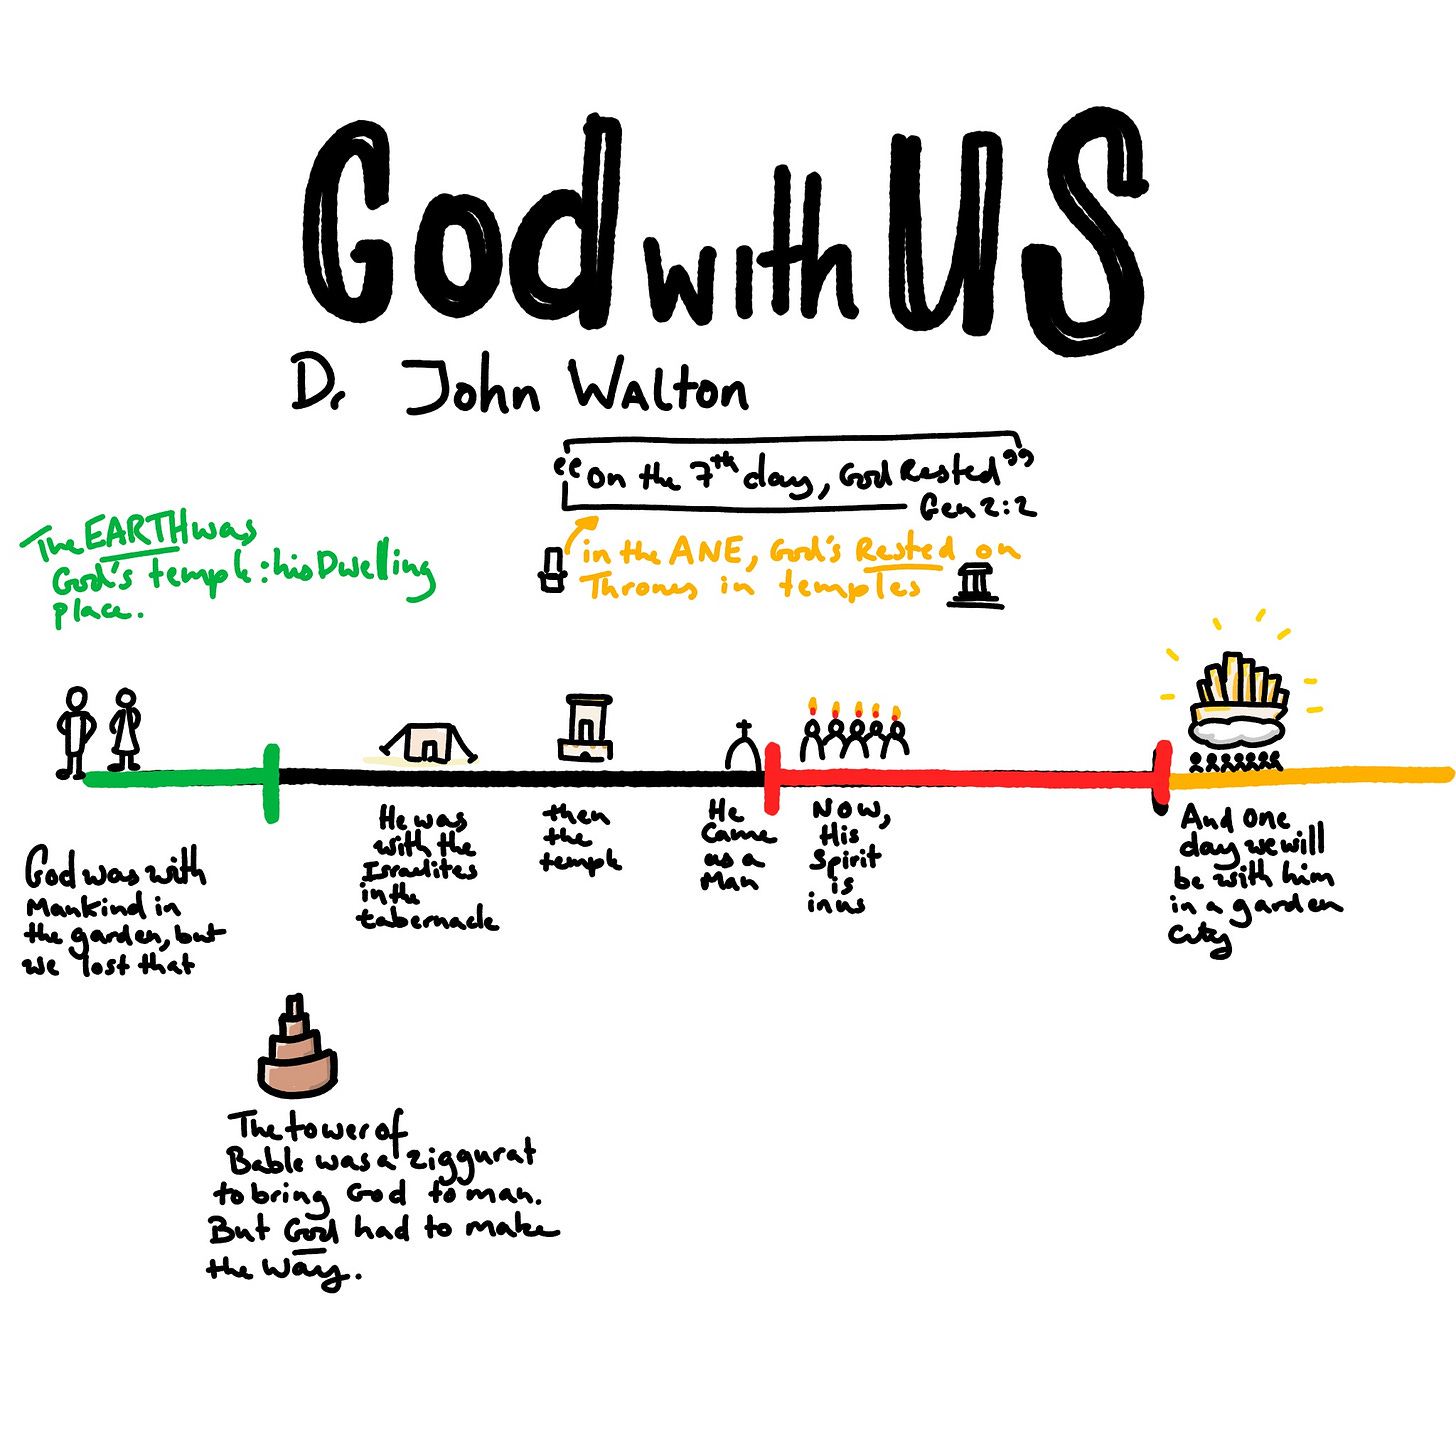 God with US
Dr John Walton
"on the 7th day, God Rested"
Gen 2:2
in the ANE, God's Rested on
Thrones in temples
The EARTH was
God's temple: his Dwelling
place.
God was with
Mankind in
the garden, but
we lost that
He was
with the
Israelites
in the
tabernacle
then
the
temple
He
Came
as a
Man
Now,
His
Spirit
is
in us
And one
day we will
be with him
in a garden
City
The tower of
Bable was a ziggurat
to bring God to man.
But God had to make
the Way.